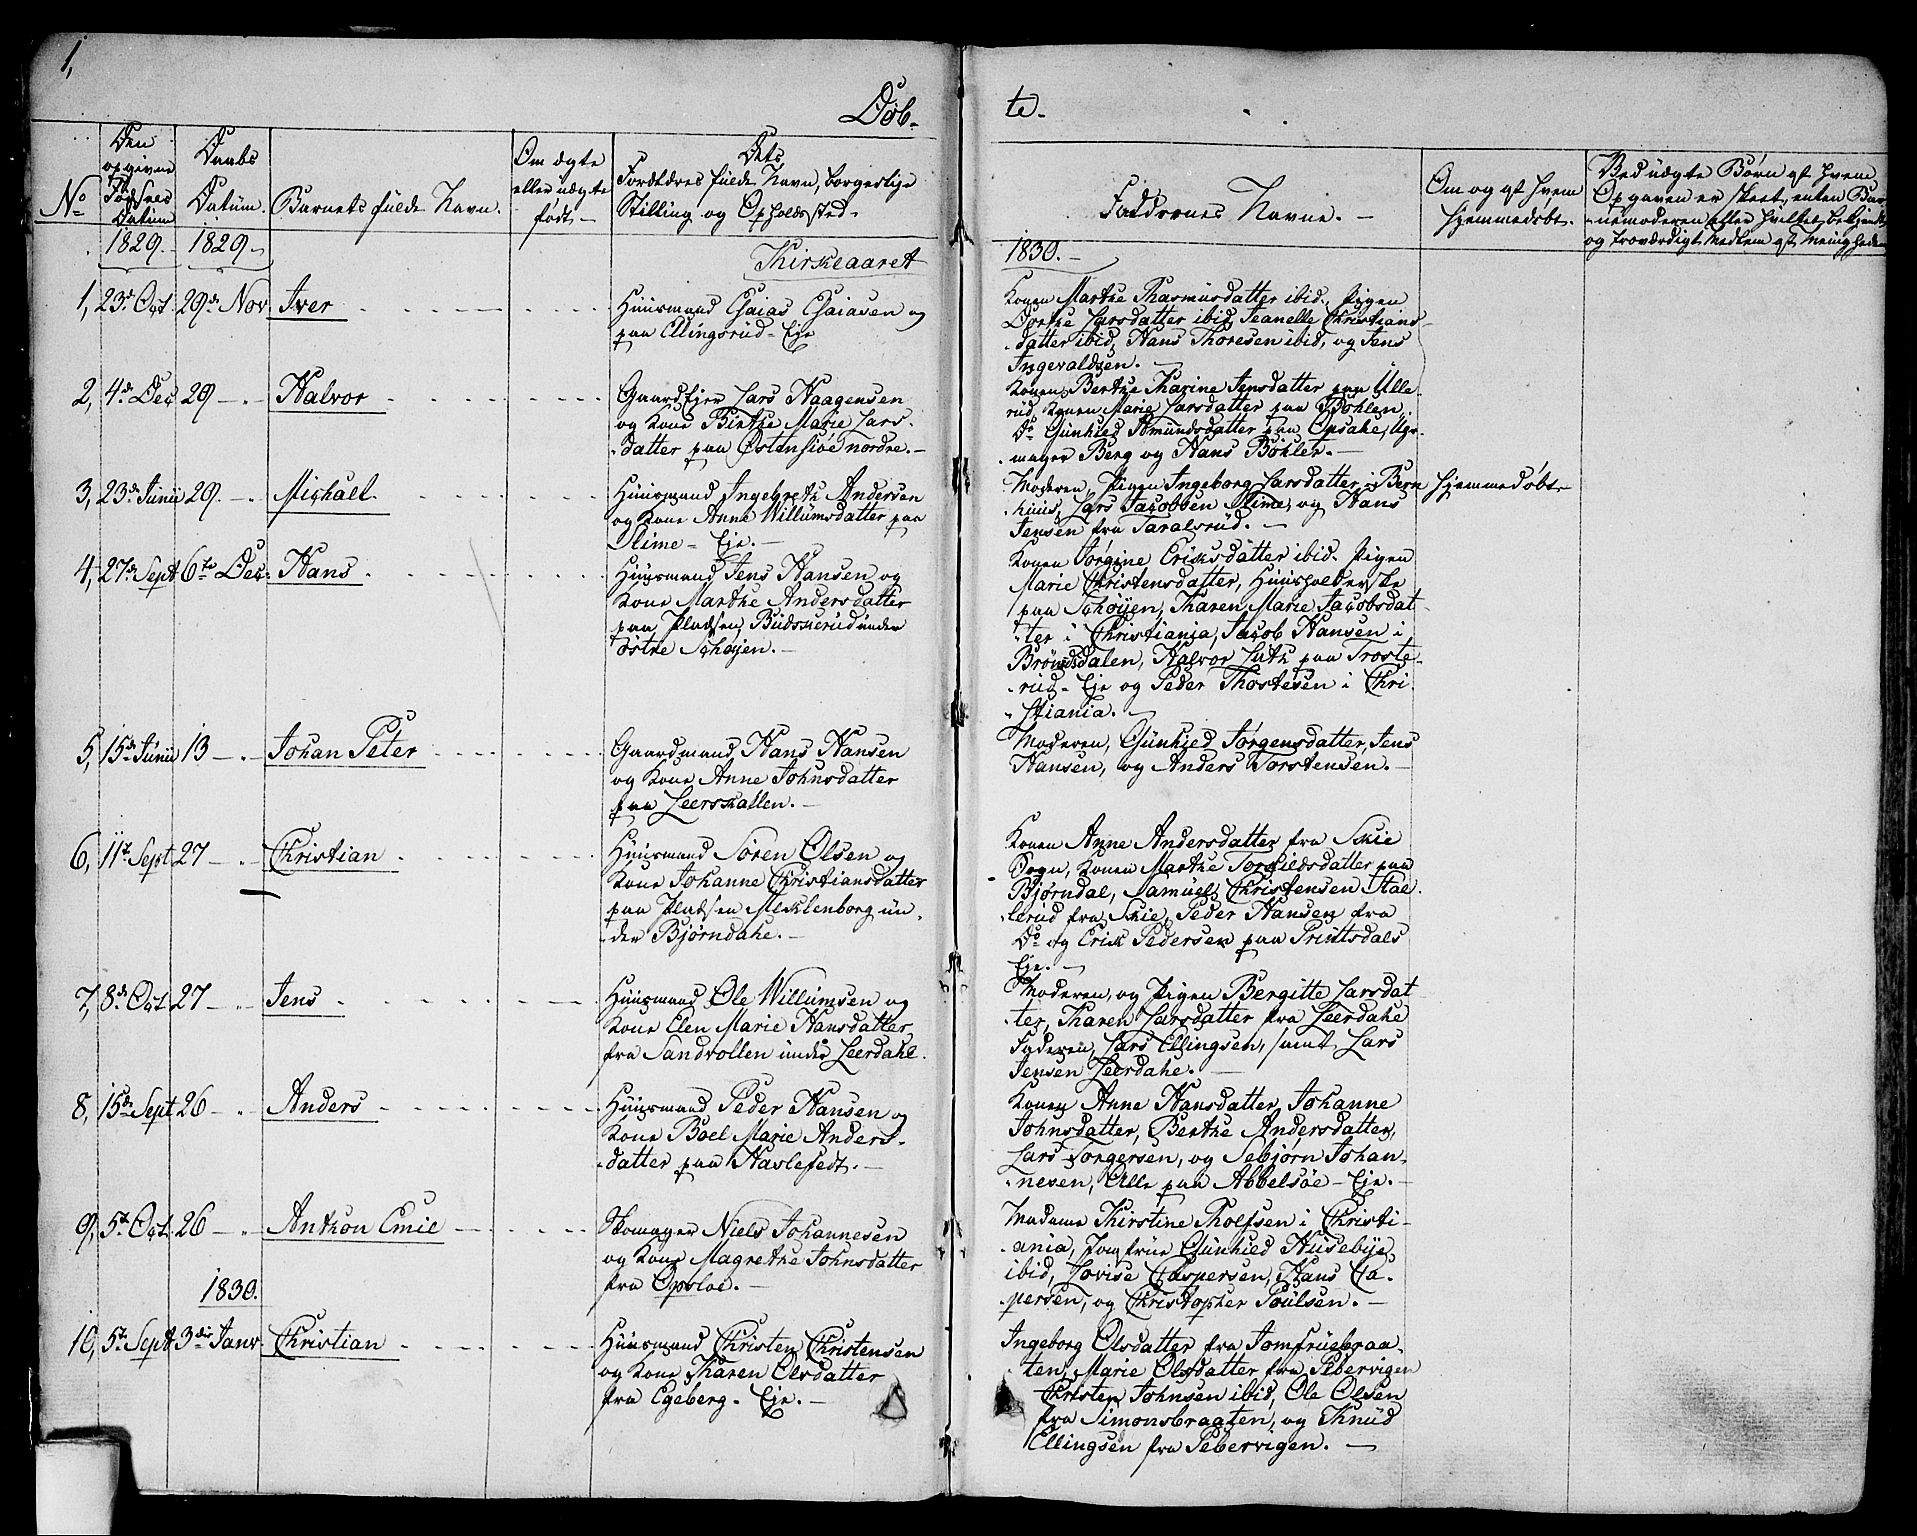 1,
Døb-
te.
No
Den
opgivne
Fødsels
Datum
Daabs
Datum.
Barnets fulde Navn.
Om ægte
eller uægte
født.
Dets
Forældres fulde Navn, borgerlige
Stilling og Opholdssted.
Faddrenes Navne. -
Om og af hvem
hjemmedøbt.
Ved uægte Børn af hvem
Opgaven er skeet, enten Bar-
nemoderen eller hvilket bekjendt
og troværdigt Medlem af Menigheden
1829. 1829.
Kirkeaaret
1830. -
1, 23d Oct. 29de Nov. Iver
Huusmand Esaias Esaiasen og
paa Ellingsrud-Eje
Konen Marthe Rasmusdatter ibid., Pigen
Dorthe Larsdatter ibid, Jeanette Christians-
datter ibid, Hans Thoresen ibid, og Jens
Ingevaldsen. -
2, 4de Dec 29 - " Halvor
Gaardejer Lars Haagensen
og Kone Birthe Marie Lars-
datter paa Østensiøe nordre. -
Konen Berthe Karine Jensdatter paa Ulle
rud, Konen Marie Larsdatter paa Bøhlen,
Do Gunhild Amundsdatter paa Opsahe, Uhr-
mager Berg og Hans Bøhler. -
3, 23de Junii 29. - " Michael.
Huusmand Ingebreth Andersen
og Kone Anne Willumsdatter paa
Slime - Eje. -
Moderen, Pigen Ingeborg Larsdatter i Bern
huus, Lars Jacobsen Slime, og Hans
Jensen fra Taralsrud. -
Hjemmedøbt
4, 27de Sept 6te Dec. Hans
Huusmand Jens Hansen og
Kone Marthe Andersdatter
paa Pladsen Budskerud under
østre Schøjen. -
Konen Jørgine Ericksdatter ibid. Pigen
Marie Christensdatter, Huusholderske
paa Schøyen, Karen Marie Jacobsdat-
ter i Christiania, Jacob Hansen i
Brøndsdalen, Halvor Luth paa Troste-
rud-Eje og Peder Thostesen i Chri-
stiania. -
5, 15de Junii 13 - " Johan Peter
Gaardmand Hans Hansen
og Kone Anne Johnsdatter
paa Leerskallen. -
Moderen, Gunhild Jørgensdatter, Jens
Hansen, og Anders Torstensen. -
6, 11te Sept 27 - " Christian
Huusmand Søren Olsen og
Kone Johanne Christiansdatter
paa Pladsen Meklenborg un-
der Bjørndahl. -
Konen Anne Andersdatter fra Skie
Sogn, Konen Marthe Torkildsdatter paa
Bjørndal, Samuel Christensen Stal-
lerud fra Skie, Peder Hansen fra
Do og Erick Pedersen paa Printsdals
Eje. -
7, 8de Oct. 27 - " Jens
Huusmand Ole Willumsen og
Kone Elen Marie Hansdatter
fra Sandvollen under Leerdahl.
Moderen, og Pigen Bergitte Larsdat-
ter, Karen Larsdatter fra Leerdahl
Faderen, Lars Ellingsen, samt Lars
Jensen Leerdahl. -
8, 15de Sept 26 - " Anders
Huusmand Peder Hansen og
Kone Boel Marie Anders-
datter paa Havlefedt. -
Konen Anne Hansdatter, Johanne
Johnsdatter, Berthe Andersdatter,
Lars Torgersen, og Sebjørn Johan-
nesen, Alle paa Abbelsøe-Eje. -
9, 5te Oct. 26 - " Anthon Emil
Skomager Niels Johannesen
og Kone Magrethe Johnsdatter
fra Opsloe. -
Madame Kirstine Tholfsen i Christi-
ania, Jomfrue Gunhild Husebye
ibid, Lovise Caspersen, Hans Ca-
persen, og Christopher Poulsen. -
1830.
10, 5te Sept 3die Janv. Christian
Huusmand Christen Christensen
og Kone Karen Olsdatter
fra Egeberg-Eje. -
Ingeborg Olsdatter fra Jomfruebraa-
ten, Marie Olsdatter fra Pebervigen
Christen Johnsen ibid, Ole Olsen
fra Simonsbraaten, og Knud
Ellingsen fra Pebervigen. -